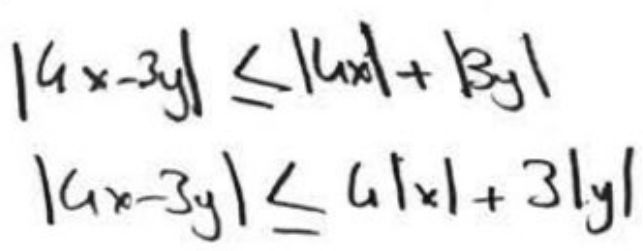 |4x-3y| ≤ |4x| + |3y|
|4x-3y| ≤ 4|x| + 3|y|